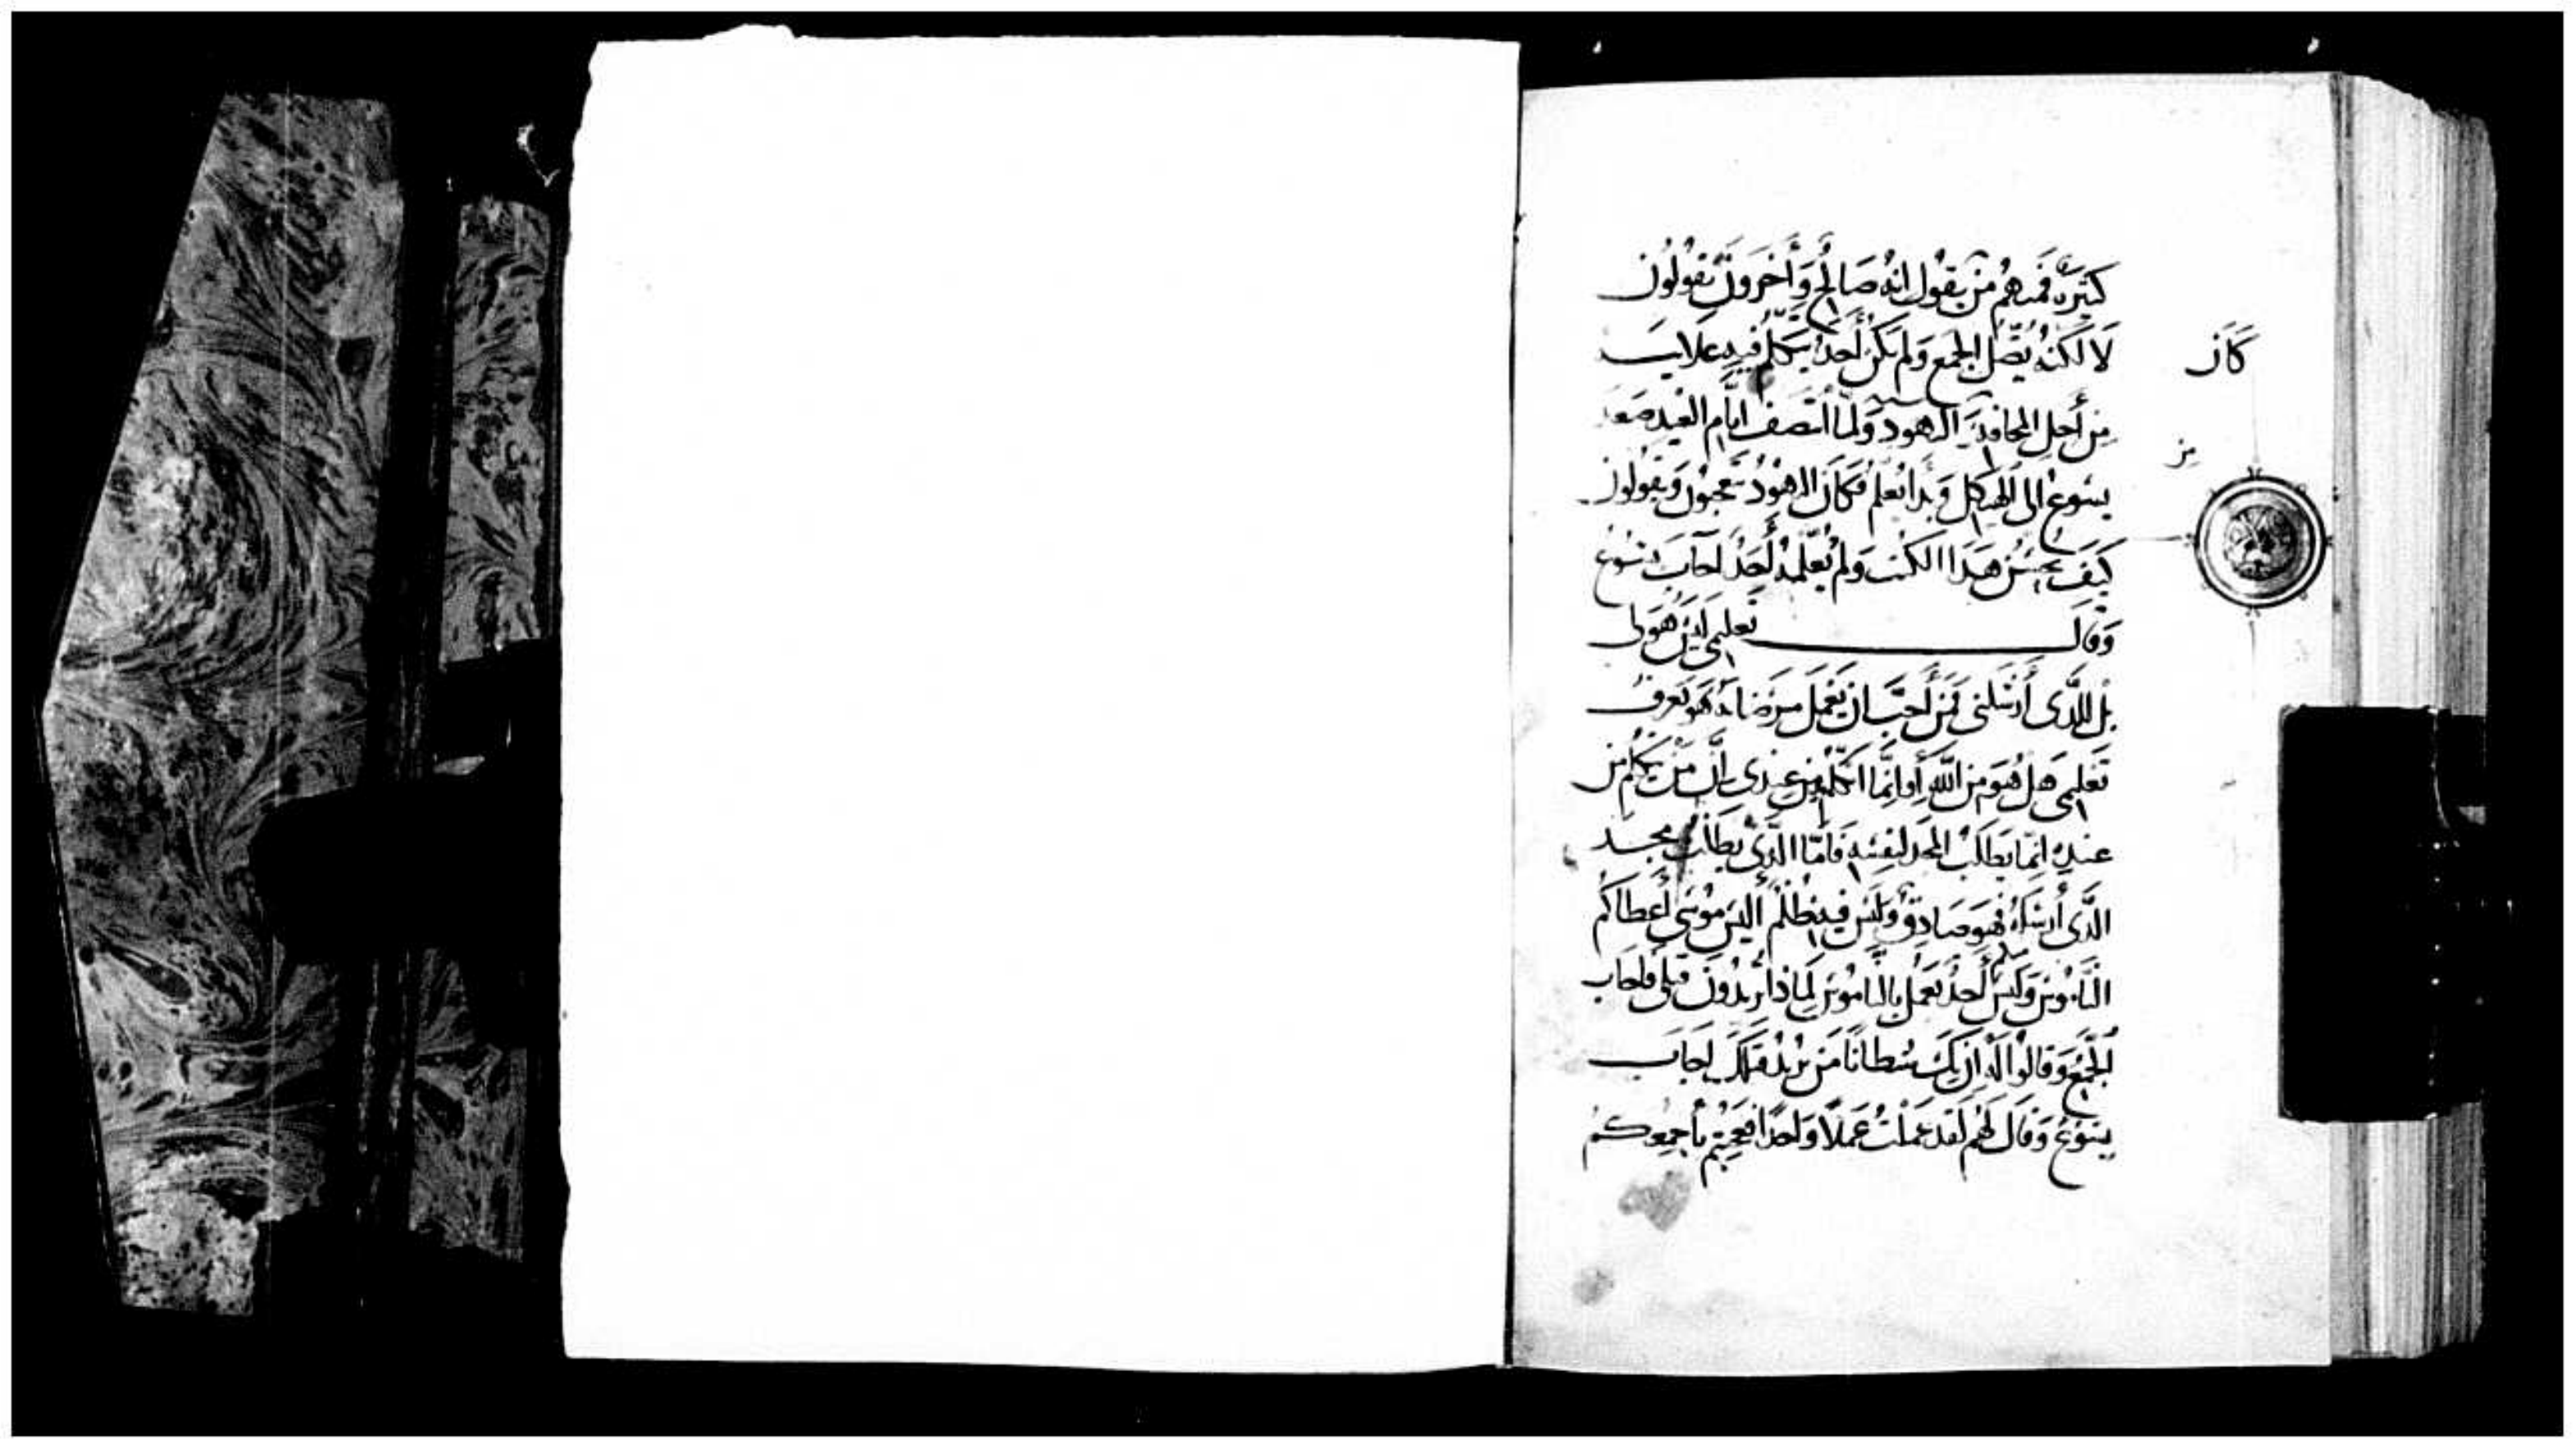 كثيرة فمنهم من يقول انه صالح وأخرون يقولون
لا لكنه يضل الجمع ولم يكن أحد يتكلم فيه علانية
من أجل المخافة اليهود ولما انتصف ايام العيد صعد
يسوع الى الهيكل وبدا يعلم فكان اليهود يتعجبون ويقولون
كيف يحسن هذا الكتب ولم يعلمه أحد أجاب يسوع
وقال تعليمى ليس هو لى
بل للذى أرسلنى فمن أحب ان يعمل مرضاته هو يعرف
تعليمى هل هو من الله أو انما اتكلم من عندى ان من يتكلم من
عنده انما يطلب المجد لنفسه فاما الذى يطلب مجد
الذى أرسله فهو صادق وليس فيه ظلم أليس موسى أعطاكم
الناموس وليس أحد منكم يعمل بالناموس لماذا تريدون قتلى فاجاب
الجمع وقالوا له ان بك شيطانا من يريد قتلك اجاب
يسوع وقال لهم لقد عملت عملا واحدا فعجبتم باجمعكم
كان
من